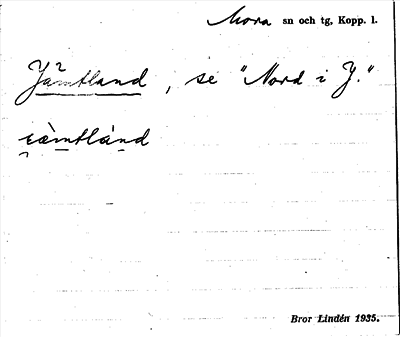 Mora sn och tg, Kopp. l.
Jämtland, se "Nord i J."
i̯ämtlánd
Bror Lindén 1935.